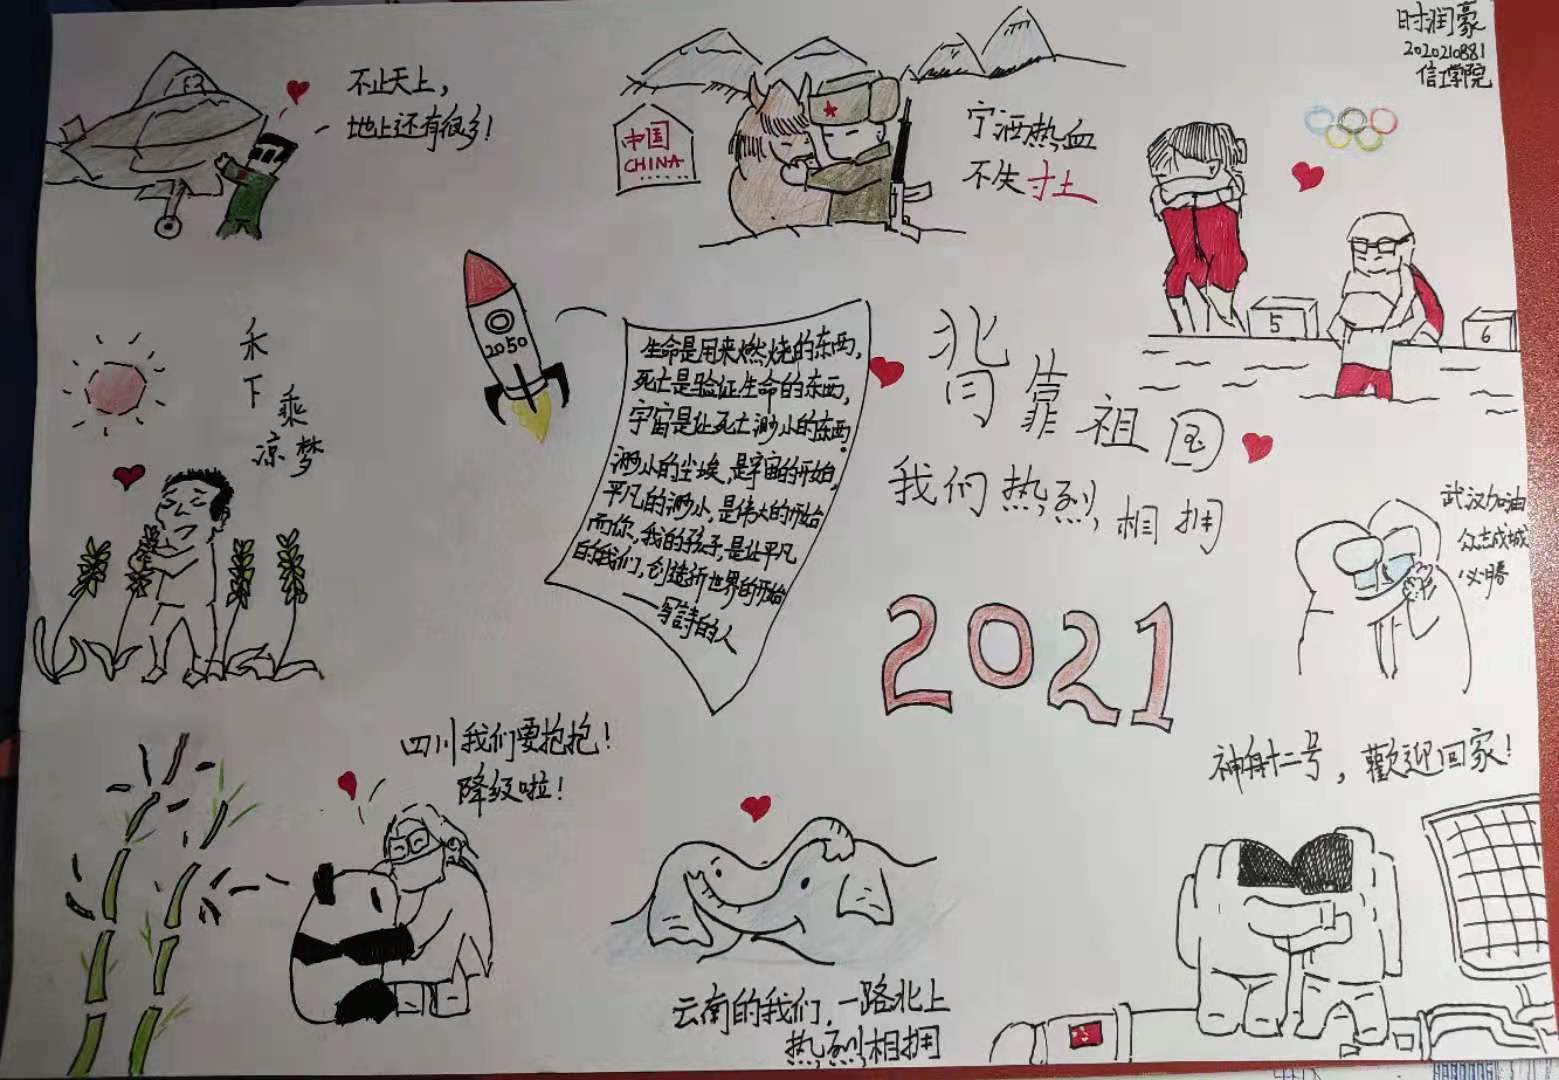 时润豪
2020210881
信工学院
不止天上，
地上还有很多！
中国
CHINA
宁洒热血
不失寸土
5
6
2050
禾下乘凉梦
生命是用来燃烧的东西，
死亡是验证生命的东西，
宇宙是让死亡渺小的东西。
渺小的尘埃，是宇宙的开始，
平凡的渺小，是伟大的开始
而你，我的孩子，是让平凡
的我们，创造新世界的开始
——写詩的人
背靠祖国
我们热烈相拥
2021
武汉加油
众志成城
必勝
四川我们要抱抱！
降级啦！
云南的我们，一路北上
热烈相拥
神舟十二号，歡迎回家！